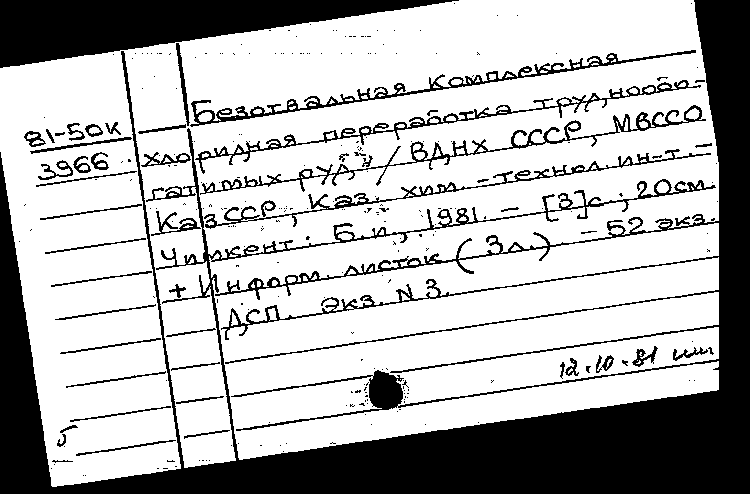 81-50к
3966
Безотвальная комплексная
хлоридная переработка труднообо-
гатимых руд. / ВДНХ СССР, МВССО
КазССР, Каз. хим.-технол. ин-т.-
Чимкент: Б.и., 1981. - [3]с.; 20см.
+ Информ. листок (3л.) - 52 экз.
ДСП. Экз. N 3.
12.10.81